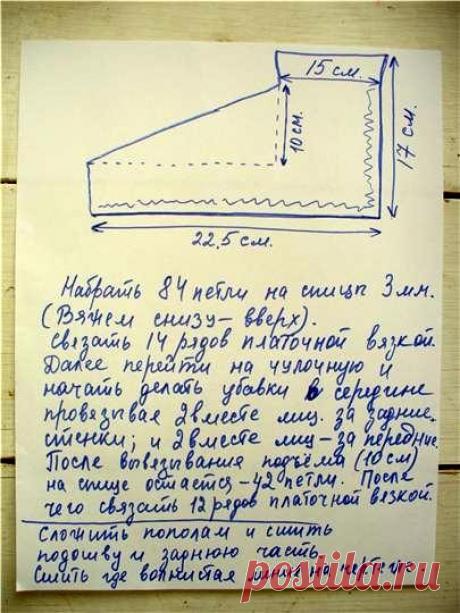 15 см.
10 см.
17 см.
22,5 см.
Набрать 84 петли на спицы 3 мм.
(Вяжем снизу – вверх).
Связать 14 рядов платочной вязкой.
Далее перейти на чулочную и
начать делать убавки в середине
провязывая 2 вместе лиц. за задние
стенки; и 2 вместе лиц – за передние.
После вывязывания подъёма (10 см)
на спице остаётся – 42 петли. После
чего связать 12 рядов платочной вязкой.
Сложить пополам и сшить
подошву и заднюю часть.
Сшить где волнистая линия на чертеже
postila.ru